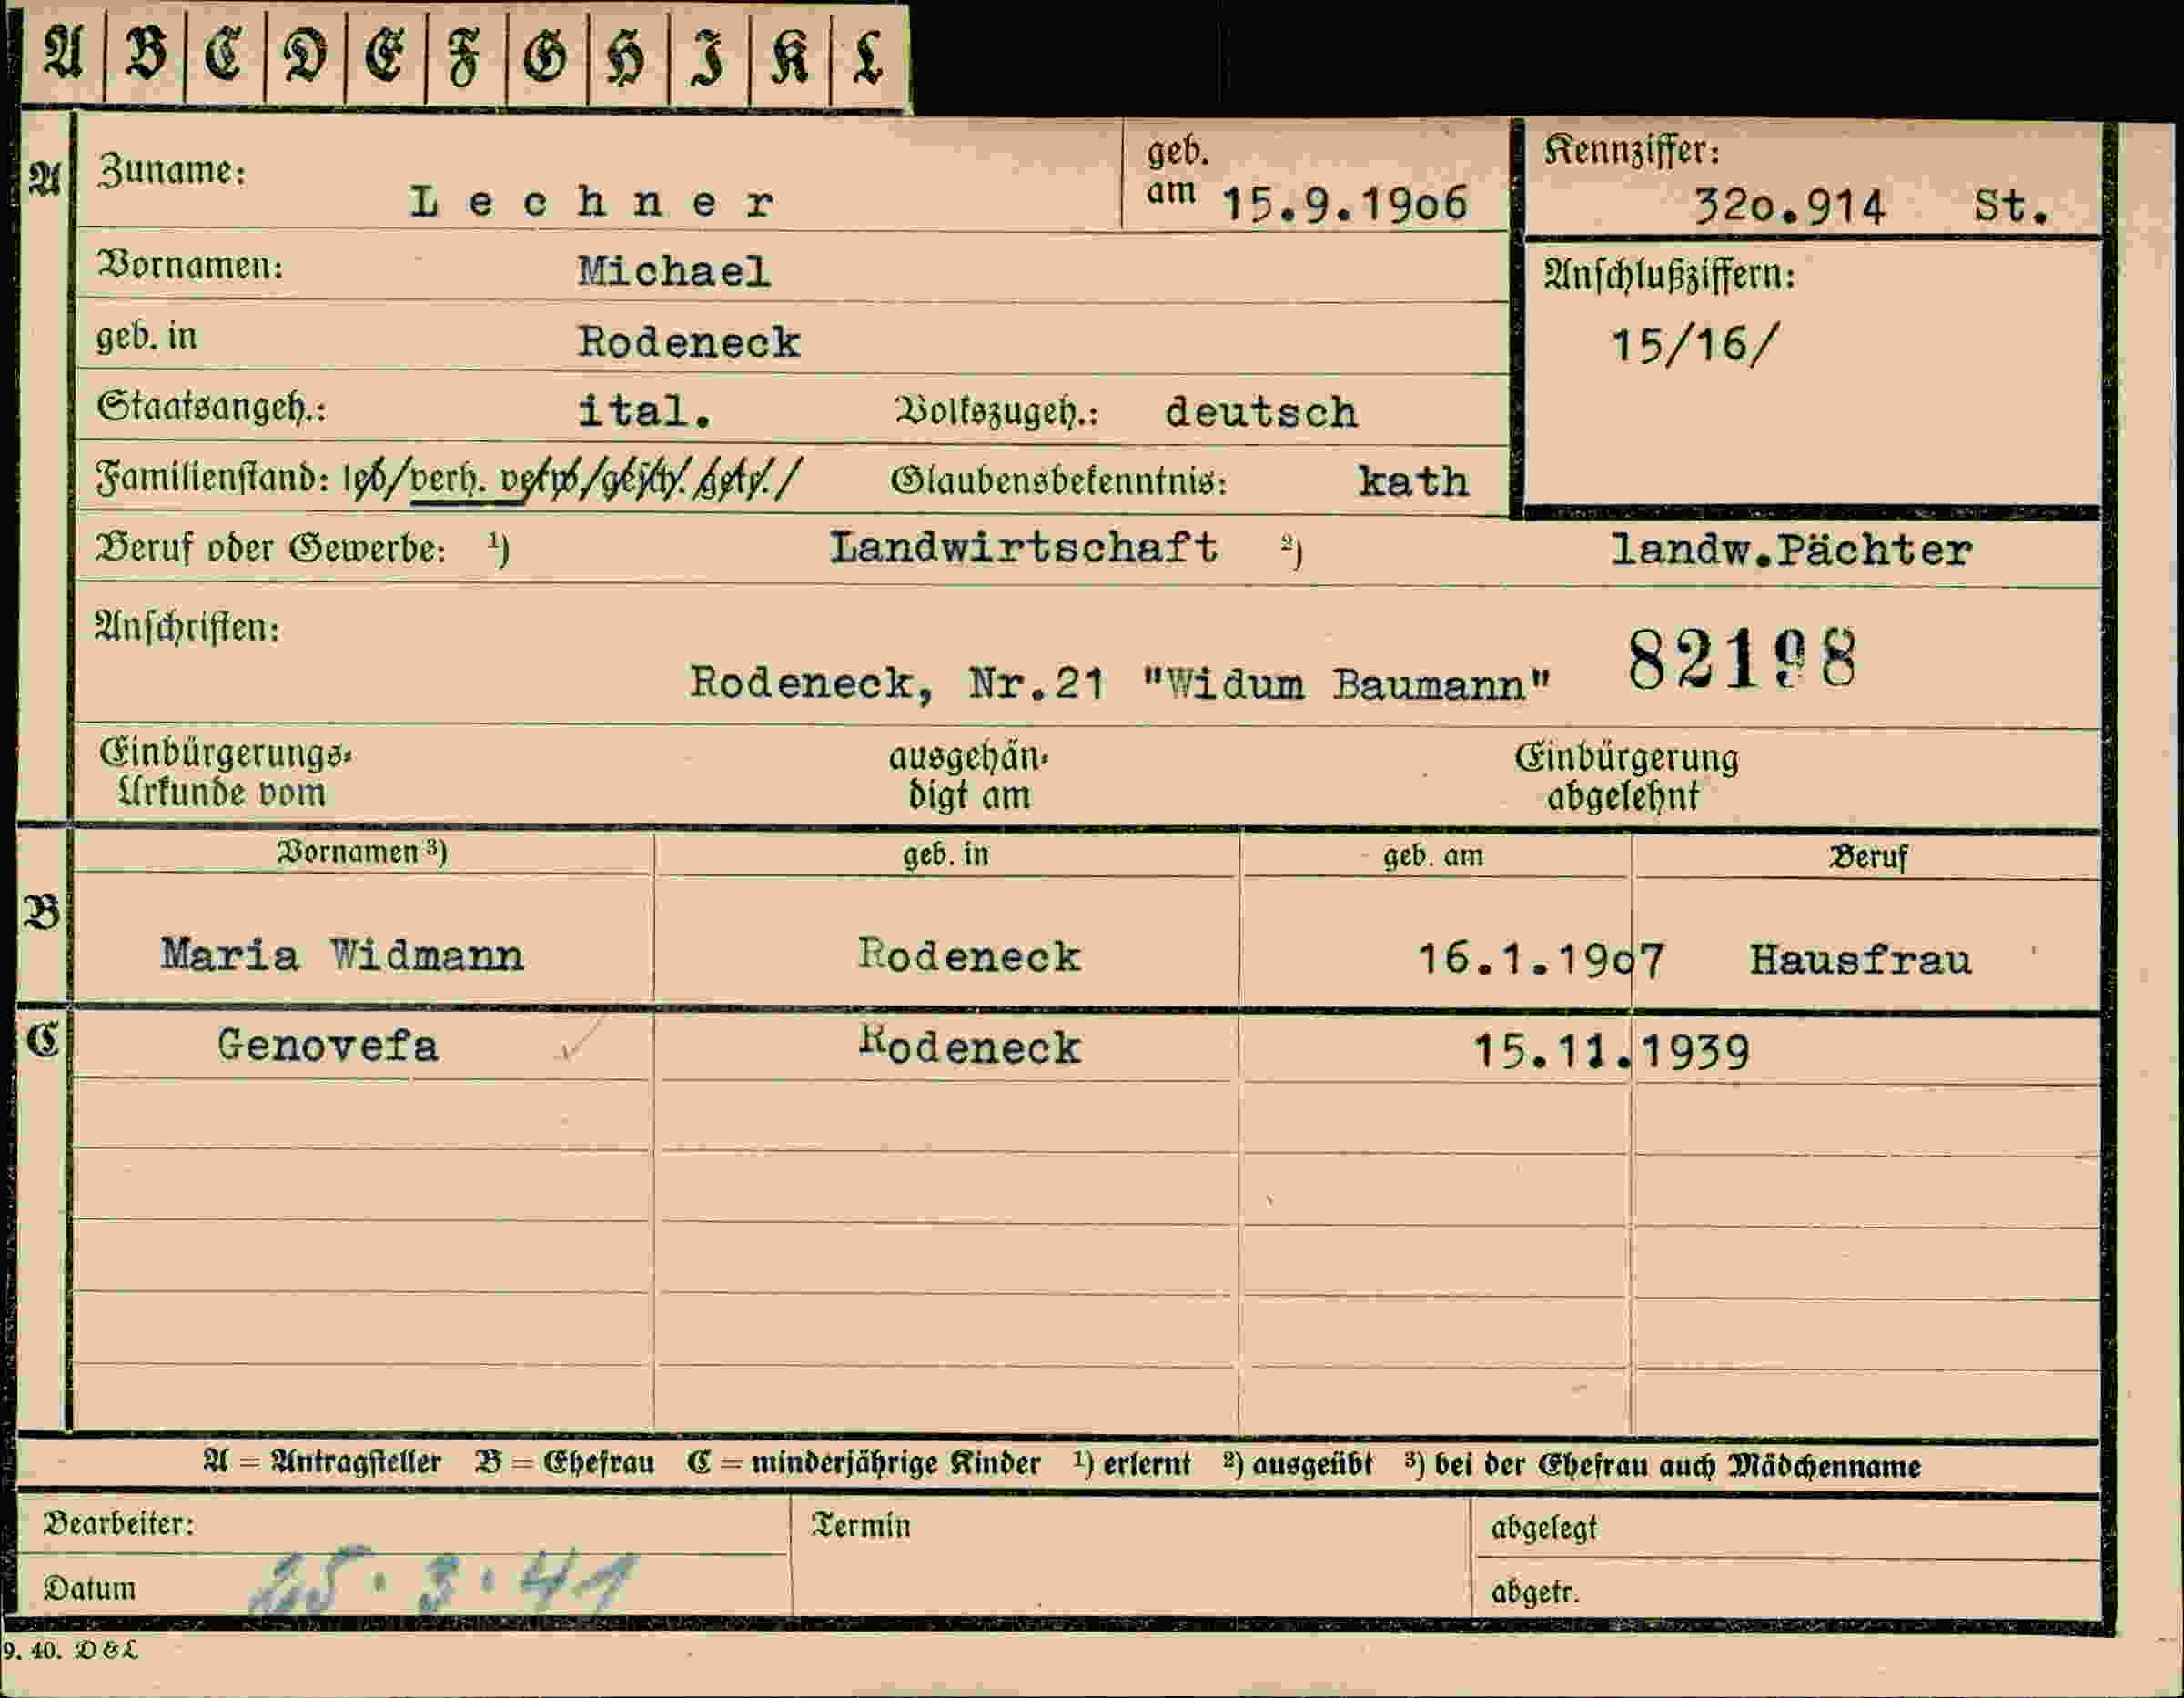 A B C D E F G H I K L
A Zuname: Lechner geb. am 15.9.1906 Kennziffer: 320.914 St.
Vornamen: Michael Anschlußziffern:
geb. in Rodeneck 15/16/
Staatsangeh.: ital. Volkszugeh.: deutsch
Familienstand: led/verh. verw/gesch. getr./ Glaubensbekenntnis: kath
Beruf oder Gewerbe: 1) Landwirtschaft 2) landw.Pächter
Anschriften: 82198
Rodeneck, Nr.21 "Widum Baumann"
Einbürgerungs- ausgehän- Einbürgerung
Urkunde vom digt am abgelehnt
Vornamen 3) geb. in geb. am Beruf
B
Maria Widmann Rodeneck 16.1.1907 Hausfrau
C Genovefa Rodeneck 15.11.1939
A = Antragsteller B = Ehefrau C = minderjährige Kinder 1) erlernt 2) ausgeübt 3) bei der Ehefrau auch Mädchenname
Bearbeiter: Termin abgelegt
Datum 25.3.41 abgetr.
9. 40. D&L